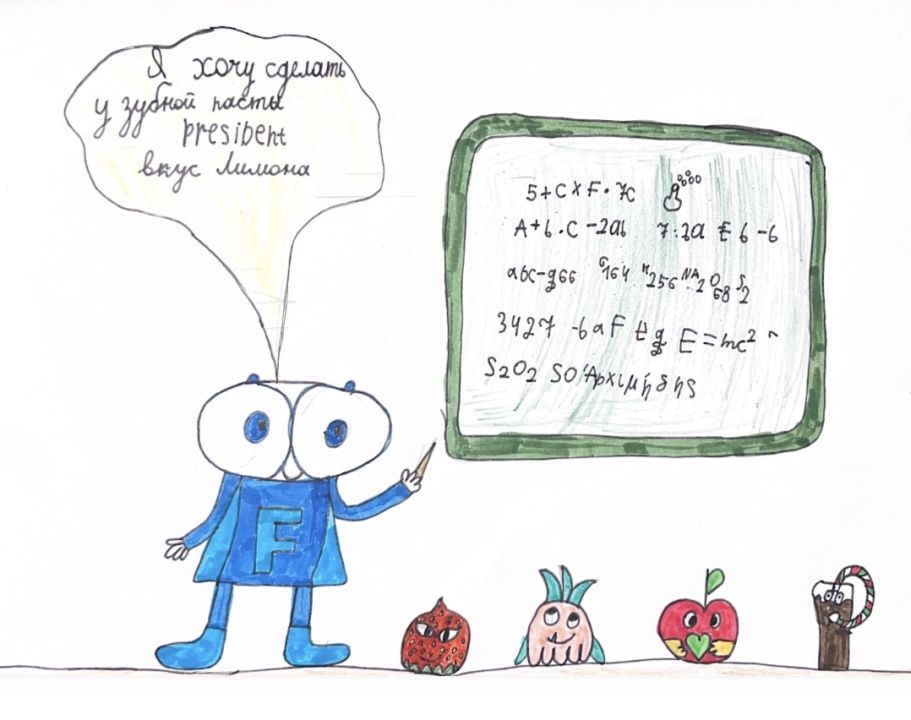 Я хочу сделать
у зубной пасты
presibent
вкус Лимона
5+C×F·7c
A+b·C-2ab 7:2a £ 6-6
abc-g66 G164 H256 NA2 O68 S2
3427 -6aF g E=mc²
S2O2 SO 'Архιμήδης
F